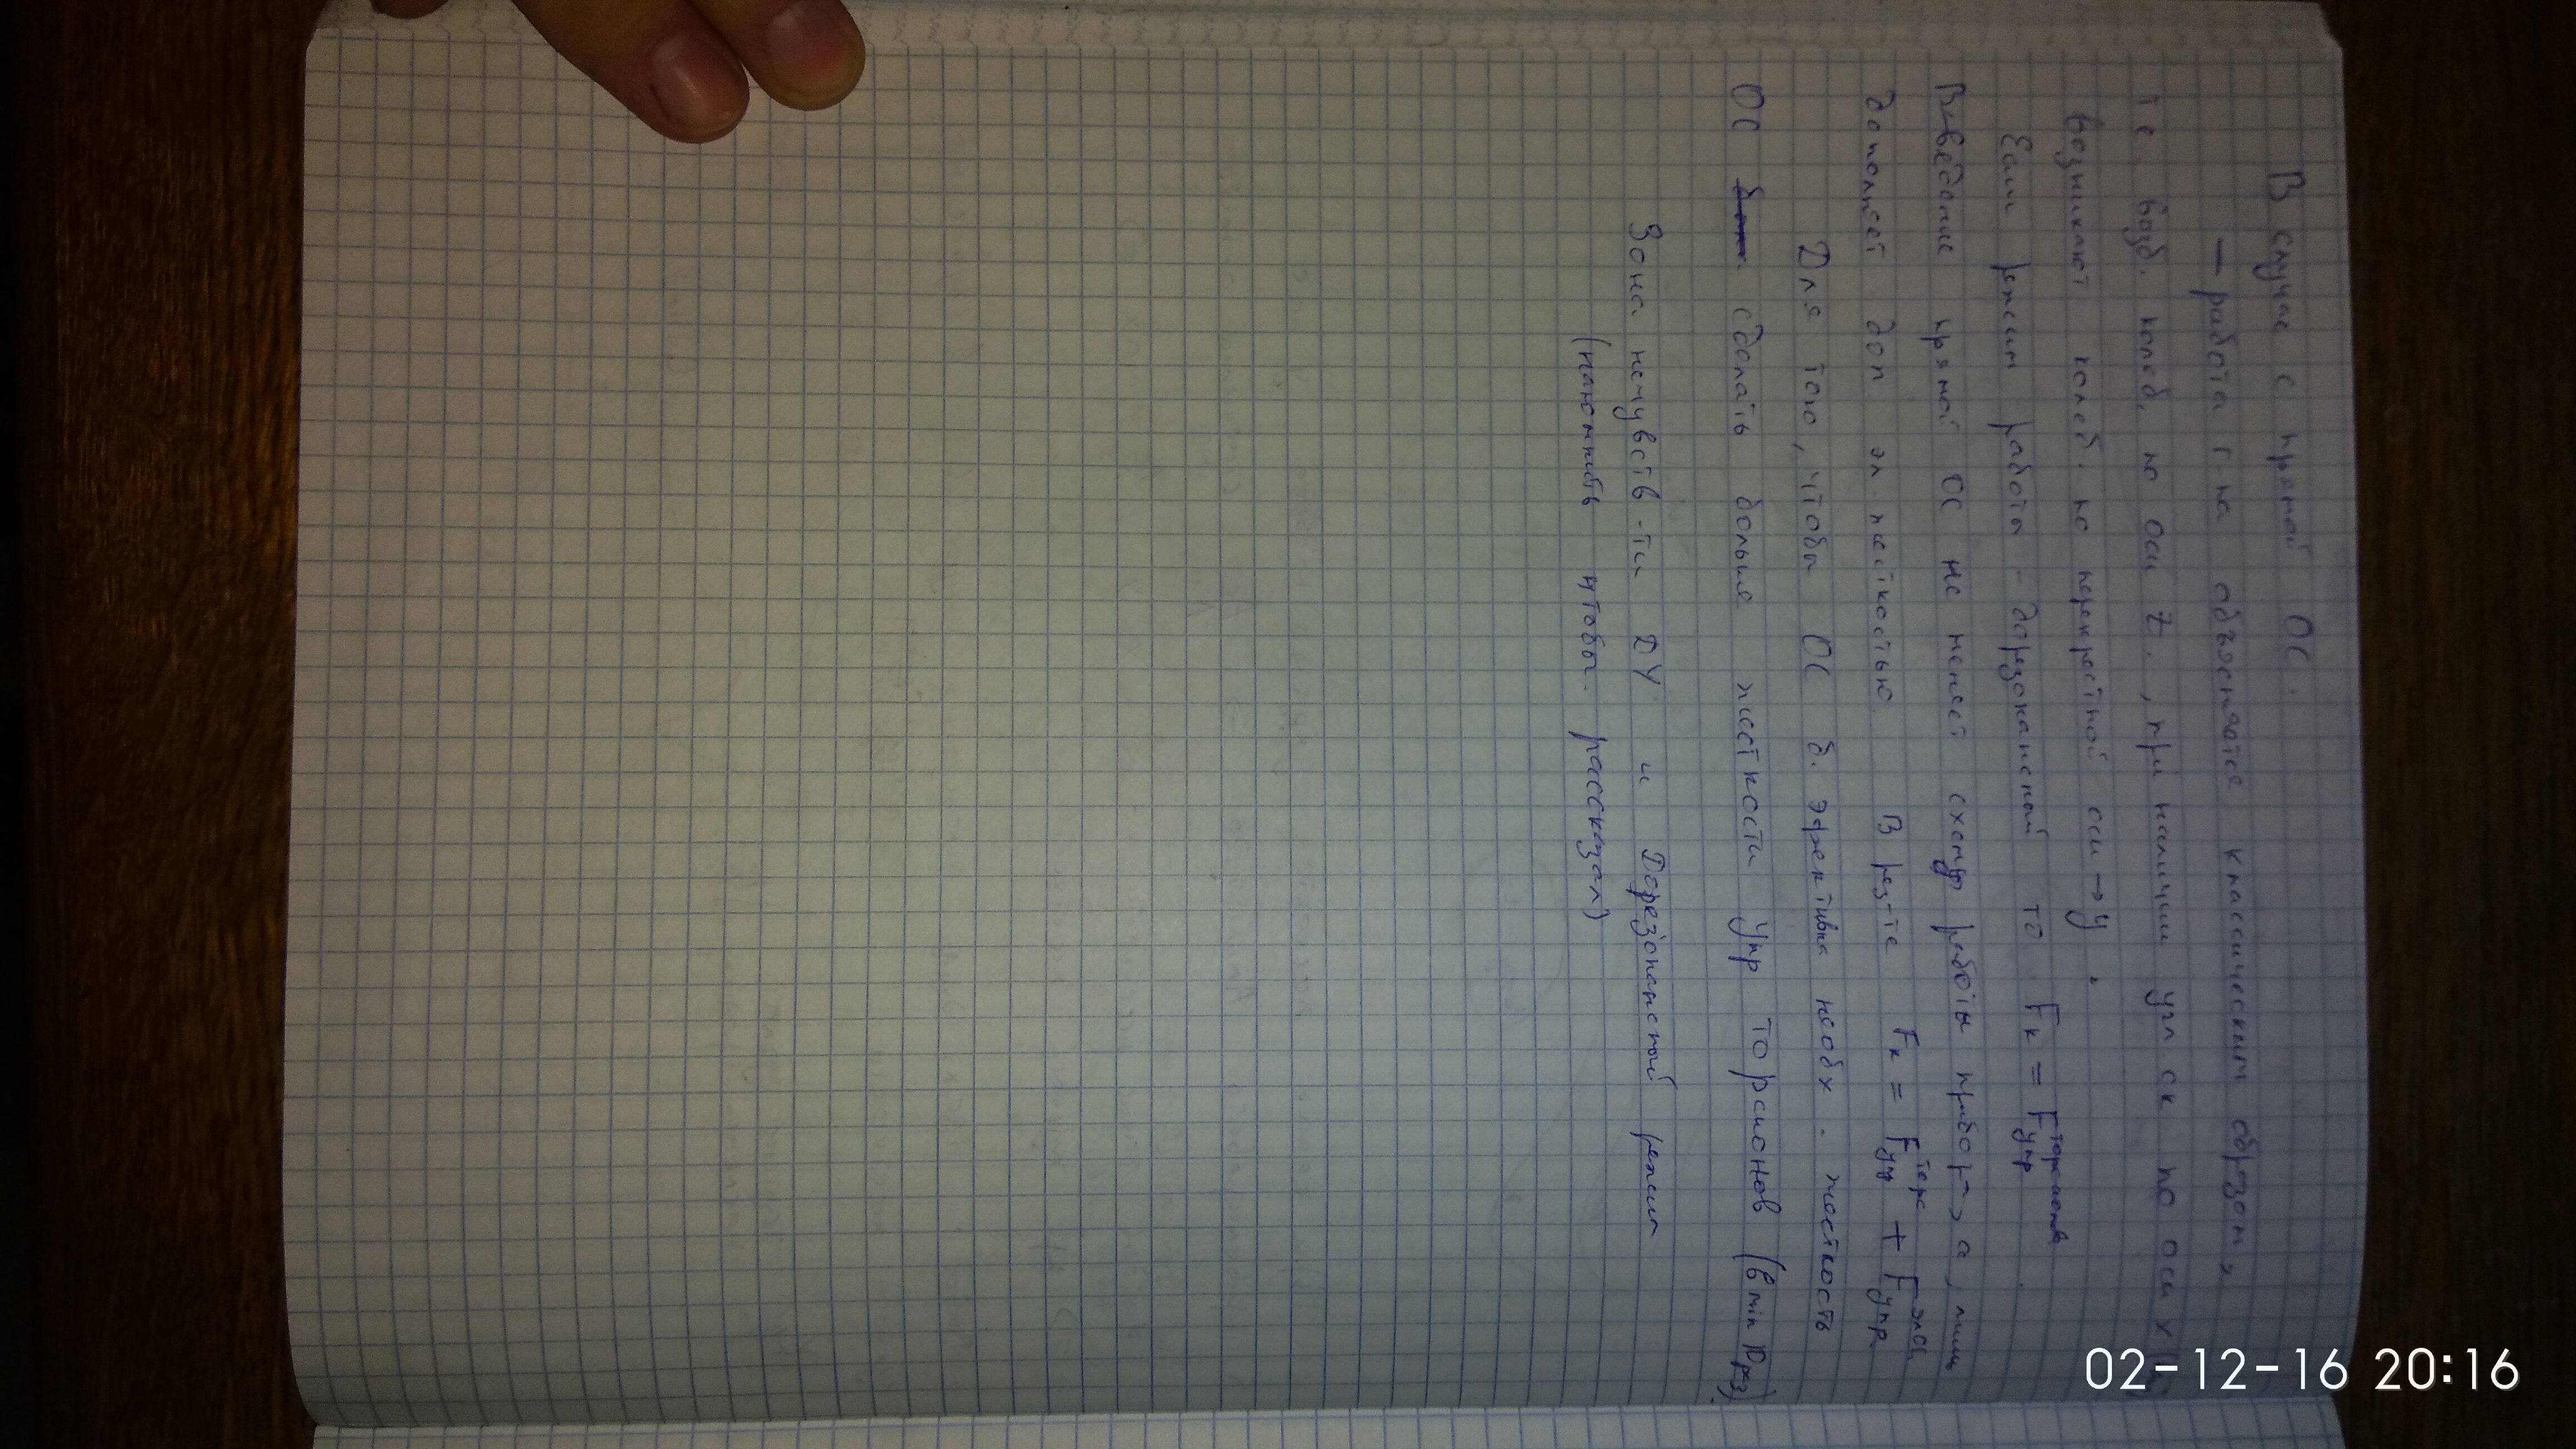 В случае с прямой ОС.
— работа г-па объясняется классическим образом,
те. возб. колеб. по оси Z, при наличии угл ск по оси x
возникают колеб. по перекрестной оси → y.
Если режим работы - дорезонансный то Fк = Fупр торсионов
Введение прямой ОС не меняет схему работы прибора, лишь
дополняет доп эл. жесткостью. В рез-те Fк = Fупр торс + Fупр эл ос
Для того, чтобы ОС б. эффективна необх. жесткость
ОС сделать больше жесткости упр торсионов (в min раз)
Зона нечувств-ти ДУ и Дорезонансный режим
(напомнить чтобы рассказал)
02-12-16 20:16